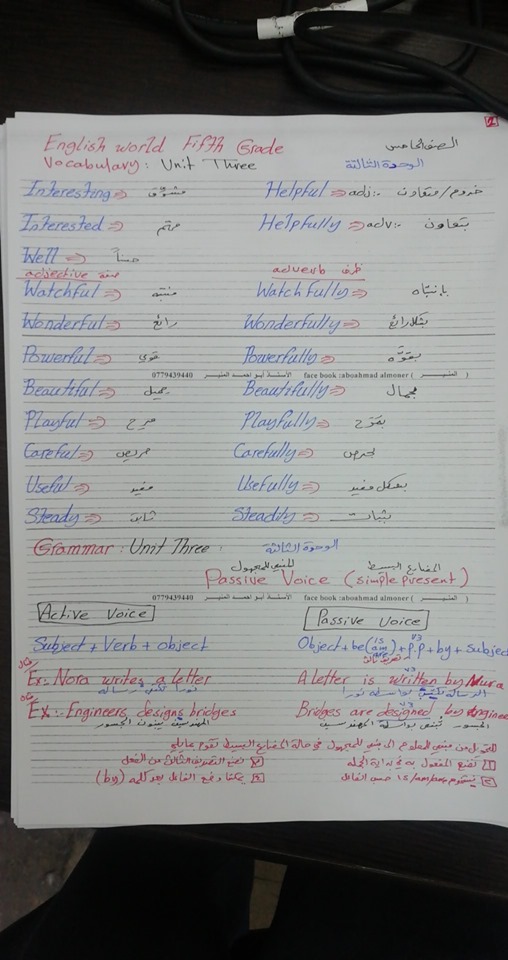 2
English world Fifth Grade الصف الخامس
Vocabulary: Unit Three الوحدة الثالثة
Interesting ⇒ مشوق Helpful ⇒ adj:- خدوم/متعاون
Interested ⇒ مهتم Helpfully ⇒ adv:- بتعاون
Well ⇒ حسناً
adjective صفة adverb ظرف
Watchful ⇒ منتبه Watchfully ⇒ بإنتباه
Wonderful ⇒ رائع Wonderfully ⇒ بشكل رائع
Powerful ⇒ قوي Powerfully ⇒ بقوة
0779439440 الأستاذ أبو احمد المنير face book :aboahmad almoner ( المنير )
Beautiful ⇒ جميل Beautifully ⇒ بجمال
Playful ⇒ مرح Playfully ⇒ بمرح
Careful ⇒ حريص Carefully ⇒ بحرص
Useful ⇒ مفيد Usefully ⇒ بشكل مفيد
Steady ⇒ ثابت Steadily ⇒ بثبات
Grammar: Unit Three: الوحدة الثالثة
المبني للمجهول المضارع البسيط
Passive Voice (simple present)
0779439440 الأستاذ أبو احمد المنير face book :aboahmad almoner ( المنير )
Active Voice Passive Voice
Subject + Verb + object Object + be (is am are) + p.p + by + Subject
V3
تصريف ثالث
مثال
Ex:- Nora writes a letter A letter is written by Nura
نورا تكتب رسالة الرسالة تكتب بواسطة نورا
V3
مثال
EX:- Engineers designs bridges Bridges are designed by engineer
المهندسين يبنون الجسور الجسور تُبنى بواسطة المهندسين
V3
للتحويل من مبني للمعلوم الى مبني للمجهول في حالة المضارع البسيط نقوم بما يلي
1 نضع المفعول به في بداية الجملة 3 نضع التصريف الثالث من الفعل
2 نستخدم is/am/are حسب الفاعل 4 يمكننا وضع الفاعل بعد كلمة (by)